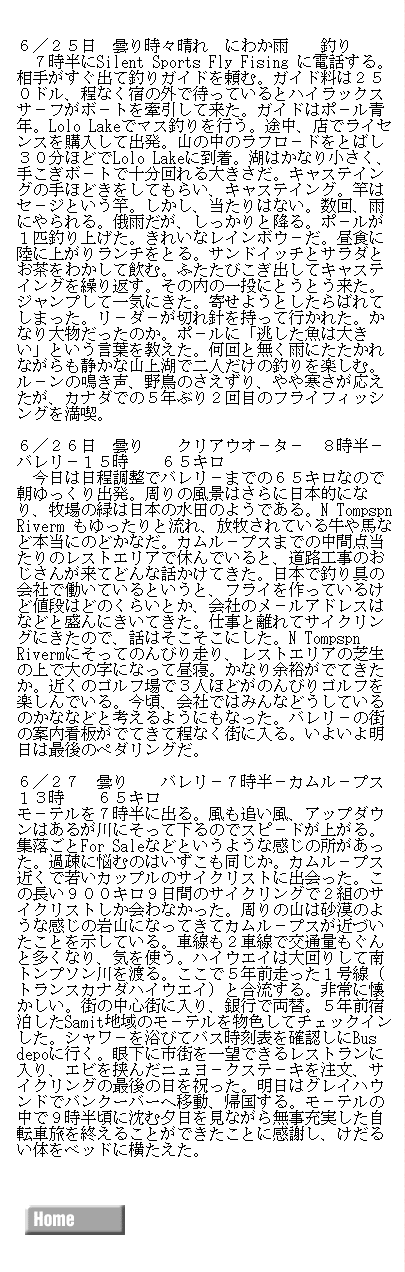 ６／２５日　曇り時々晴れ　にわか雨　　釣り
　７時半にSilent Sports Fly Fising に電話する。
相手がすぐ出て釣りガイドを頼む。ガイド料は２５
０ドル、程なく宿の外で待っているとハイラックス
サーフがボートを牽引して来た。ガイドはポール青
年。Lolo Lakeでマス釣りを行う。途中、店でライセ
ンスを購入して出発。山の中のラフロードをとばし
３０分ほどでLolo Lakeに到着。湖はかなり小さく、
手こぎボートで十分回れる大きさだ。キャステイン
グの手ほどきをしてもらい、キャステイング。竿は
セージという竿。しかし、当たりはない。数回、雨
にやられる。俄雨だが、しっかりと降る。ポールが
１匹釣り上げた。きれいなレインボウーだ。昼食に
陸に上がりランチをとる。サンドイッチとサラダと
お茶をわかして飲む。ふたたびこぎ出してキャステ
イングを繰り返す。その内の一投にとうとう来た。
ジャンプして一気にきた。寄せようとしたらばれて
しまった。リーダーが切れ針を持って行かれた。か
なり大物だったのか。ポールに「逃した魚は大き
い」という言葉を教えた。何回と無く雨にたたかれ
ながらも静かな山上湖で二人だけの釣りを楽しむ。
ルーンの鳴き声、野鳥のさえずり、やや寒さが応え
たが、カナダでの５年ぶり２回目のフライフィッシ
ングを満喫。
６／２６日　曇り　　クリアウオーター　８時半－
バレリー１５時　　６５キロ
　今日は日程調整でバレリーまでの６５キロなので
朝ゆっくり出発。周りの風景はさらに日本的にな
り、牧場の緑は日本の水田のようである。N Tompspn
Riverm もゆったりと流れ、放牧されている牛や馬な
ど本当にのどかなだ。カムループスまでの中間点当
たりのレストエリアで休んでいると、道路工事のお
じさんが来てどんな話かけてきた。日本で釣り具の
会社で働いているというと、フライを作っているけ
ど値段はどのくらいとか、会社のメールアドレスは
などと盛んにきいてきた。仕事と離れてサイクリン
グにきたので、話はそこそこにした。N Tompspn
Rivermにそってのんびり走り、レストエリアの芝生
の上で大の字になって昼寝。かなり余裕がでてきた
か。近くのゴルフ場で３人ほどがのんびりゴルフを
楽しんでいる。今頃、会社ではみんなどうしている
のかななどと考えるようにもなった。バレリーの街
の案内看板がでてきて程なく街に入る。いよいよ明
日は最後のペダリングだ。
６／２７　曇り　　バレリー７時半－カムループス
１３時　　６５キロ
モーテルを７時半に出る。風も追い風、アップダウ
ンはあるが川にそって下るのでスピードが上がる。
集落ごとFor Saleなどというような感じの所があっ
た。過疎に悩むのはいずこも同じか。カムループス
近くで若いカップルのサイクリストに出会った。こ
の長い９００キロ９日間のサイクリングで２組のサ
イクリストしか会わなかった。周りの山は砂漠のよ
うな感じの岩山になってきてカムループスが近づい
たことを示している。車線も２車線で交通量もぐん
と多くなり、気を使う。ハイウエイは大回りして南
トンプソン川を渡る。ここで５年前走った１号線（
トランスカナダハイウエイ）と合流する。非常に懐
かしい。街の中心街に入り、銀行で両替。５年前宿
泊したSamit地域のモーテルを物色してチェックイン
した。シャワーを浴びてバス時刻表を確認しにBus
depoに行く。眼下に市街を一望できるレストランに
入り、エビを挟んだニュヨークステーキを注文、サ
イクリングの最後の日を祝った。明日はグレイハウ
ンドでバンクーバーへ移動、帰国する。モーテルの
中で９時半頃に沈む夕日を見ながら無事充実した自
転車旅を終えることができたことに感謝し、けだる
い体をベッドに横たえた。
Home